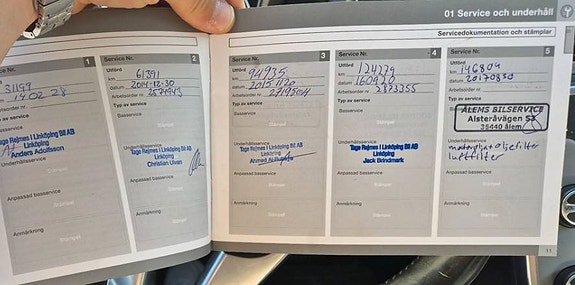 01 Service och underhåll
Servicedokumentation och stämplar
1
Service Nr.
31199
14 02 28
Typ av service
Tage Rejmes i Linköping Bil AB
Linköping
Anders Adolfsson
Underhållsservice
Anpassad basservice
Stämpel
Anmärkning
Stämpel
Service Nr.
2
Utförd
km 61391
datum 2014-12-30
Arbetsorder nr.
Typ av service
Basservice
Stämpel
Underhållsservice
Tage Rejmes i Linköping Bil AB
Linköping
Christian
Anpassad basservice
Stämpel
Anmärkning
Stämpel
Service Nr.
3
Utförd
km 94935
datum 20151120
Arbetsorder nr. 2719504
Typ av service
Basservice
Stämpel
Underhållsservice
Tage Rejmes i Linköping Bil AB
Linköping
Ahmad
Anpassad basservice
Stämpel
Anmärkning
Stämpel
Service Nr.
4
Utförd
km 124279
datum 160920
Arbetsorder nr. 2873355
Typ av service
Basservice
Stämpel
Underhållsservice
Tage Rejmes i Linköping Bil AB
Linköping
Jack Brindmark
Anpassad basservice
Stämpel
Anmärkning
Stämpel
Service Nr.
5
Utförd
km 146804
datum 20170830
Arbetsorder nr.
ÅLEMS BILSERVICE
Alsteråvägen 53
38440 ålem
Underhållsservice
motorolja + oljefilter
luftfilter
Anpassad basservice
Stämpel
Anmärkning
Stämpel
11